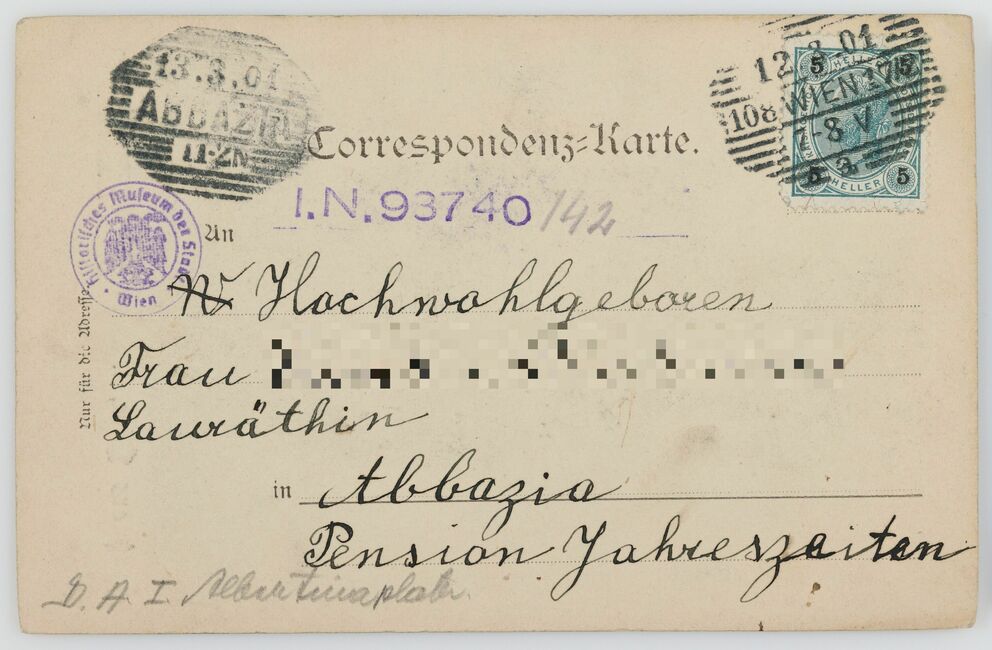 13.3.01
ABBAZIA
11-2N
12.3.01
108 WIEN
-8 V
5 HELLER 5
5 HELLER 5
Correspondenz-Karte.
I.N.93740/142
Historisches Museum der Stadt Wien
An
Hochwohlgeboren
Frau
Lauräthin
in Abbazia
Pension Jahreszeiten
Nur für die Adresse
D. A I Albertinaplatz.